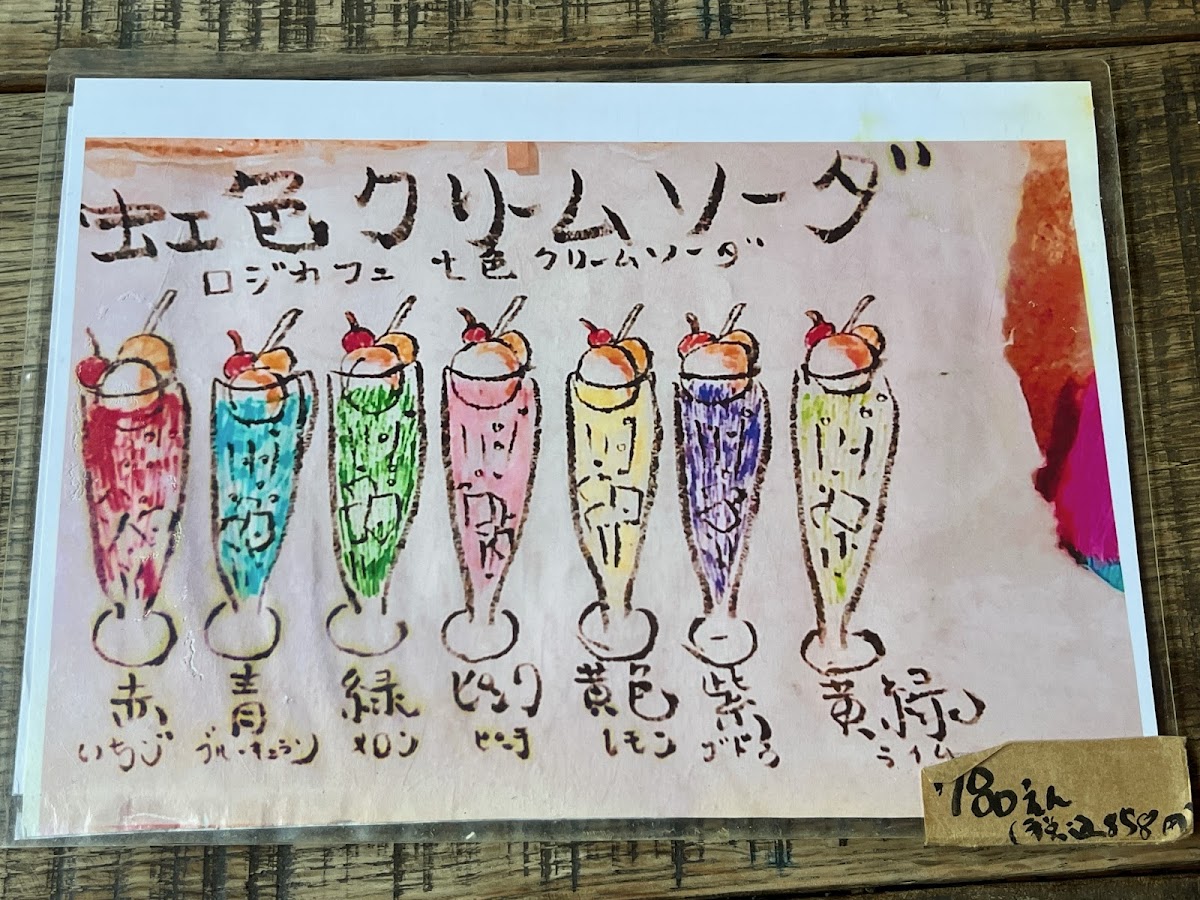 虹色クリームソーダ
ロジカフェ 七色 クリームソーダ
赤 青 緑 ピンク 黄色 紫 黄緑
いちご ブルーキュラソ メロン ピーチ レモン ブドウ ライム
780えん
(税込858円)